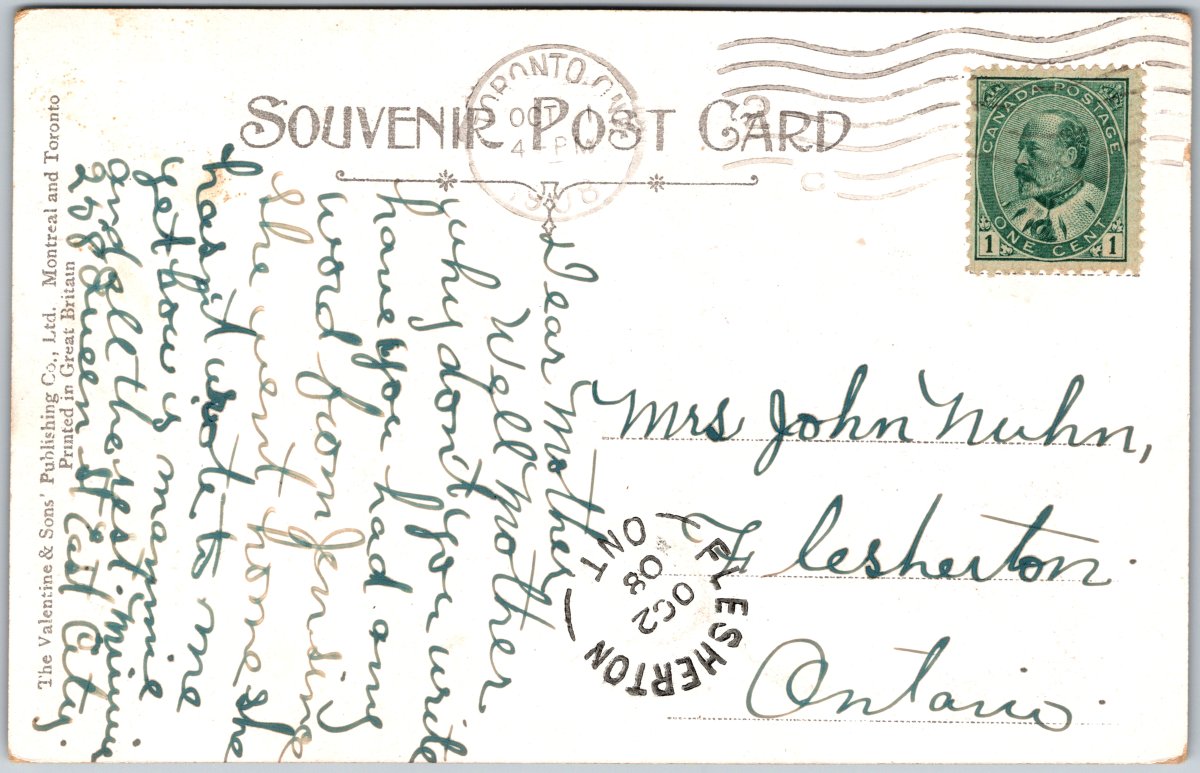 SOUVENIR POST CARD
TORONTO, ONT
OCT 1
4 PM
1908
CANADA POSTAGE
1 ONE CENT 1
Dear Mother
Well Mother
why dont you write
have you had any
word from Jensine
she went home she
hasnt wrote to me
yet how is mamie
and all the rest. minnie
258 Queen St East City.
Mrs John Nuhn,
Flesherton.
Ontario.
FLESHERTON
OC 2
08
ONT
The Valentine & Sons' Publishing Co., Ltd. Montreal and Toronto
Printed in Great Britain